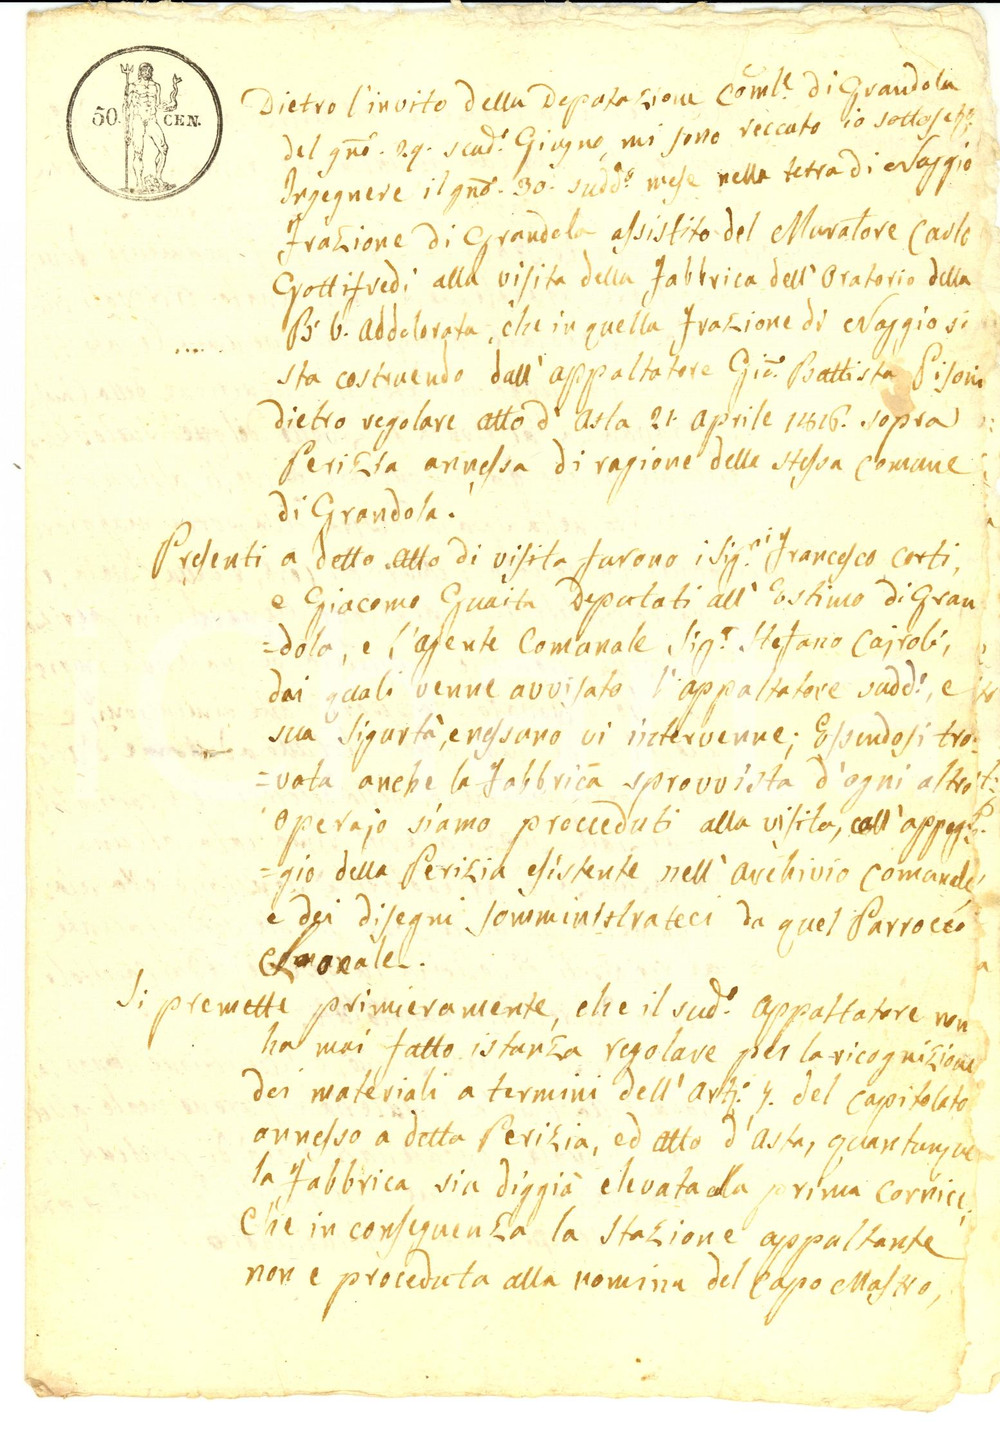 50. CEN.
Dietro l'invito della Deputazione Com.le di Grandola
del gno. 29. scad.o Giugno, mi sono reccato io sottos.
Ingegnere il gno. 30. sudd.o mese nella terra di Naggio
Frazione di Grandola assistito del Muratore Carlo
Gottifredi alla visita della Fabbrica dell'Oratorio della
B. V. Addolorata, che in quella Frazione di Naggio si
sta costruendo dall'appaltatore Gio. Battista Pisoni
dietro regolare atto d'Asta 21. Aprile 1816. sopra
Perizia annessa di ragione delle stessa Comune
di Grandola.
Presenti a detto Atto di visita furono i Sig.ri Francesco Corti,
e Giacomo Guaita Deputati all'Estimo di Gran
=dola, e l'Agente Comunale Sig.r Stefano Cairoli,
dai quali venne avvisato l'appaltatore sudd.o, e
sua Sigurtà, e nessuno vi intervenne; Essendosi tro
=vata anche la Fabbrica sprovvista d'ogni altro
Operajo siamo procceduti alla visita, coll'appog
=gio della Perizia esistente nell'Archivio Comunale
e dei disegni somministrateci da quel Parroco
Si premette primieramente, che il sud.o Appaltatore non
ha mai fatto istanza regolare per la ricognizione
dei materiali a termini dell'Art. 7. del Capitolato
annesso a detta Perizia, ed atto d'Asta, quantunque
la Fabbrica sia diggià elevata alla prima Cornice.
Che in conseguenza la Stazione appaltante
non e proceduta alla nomina del Capo Mastro,